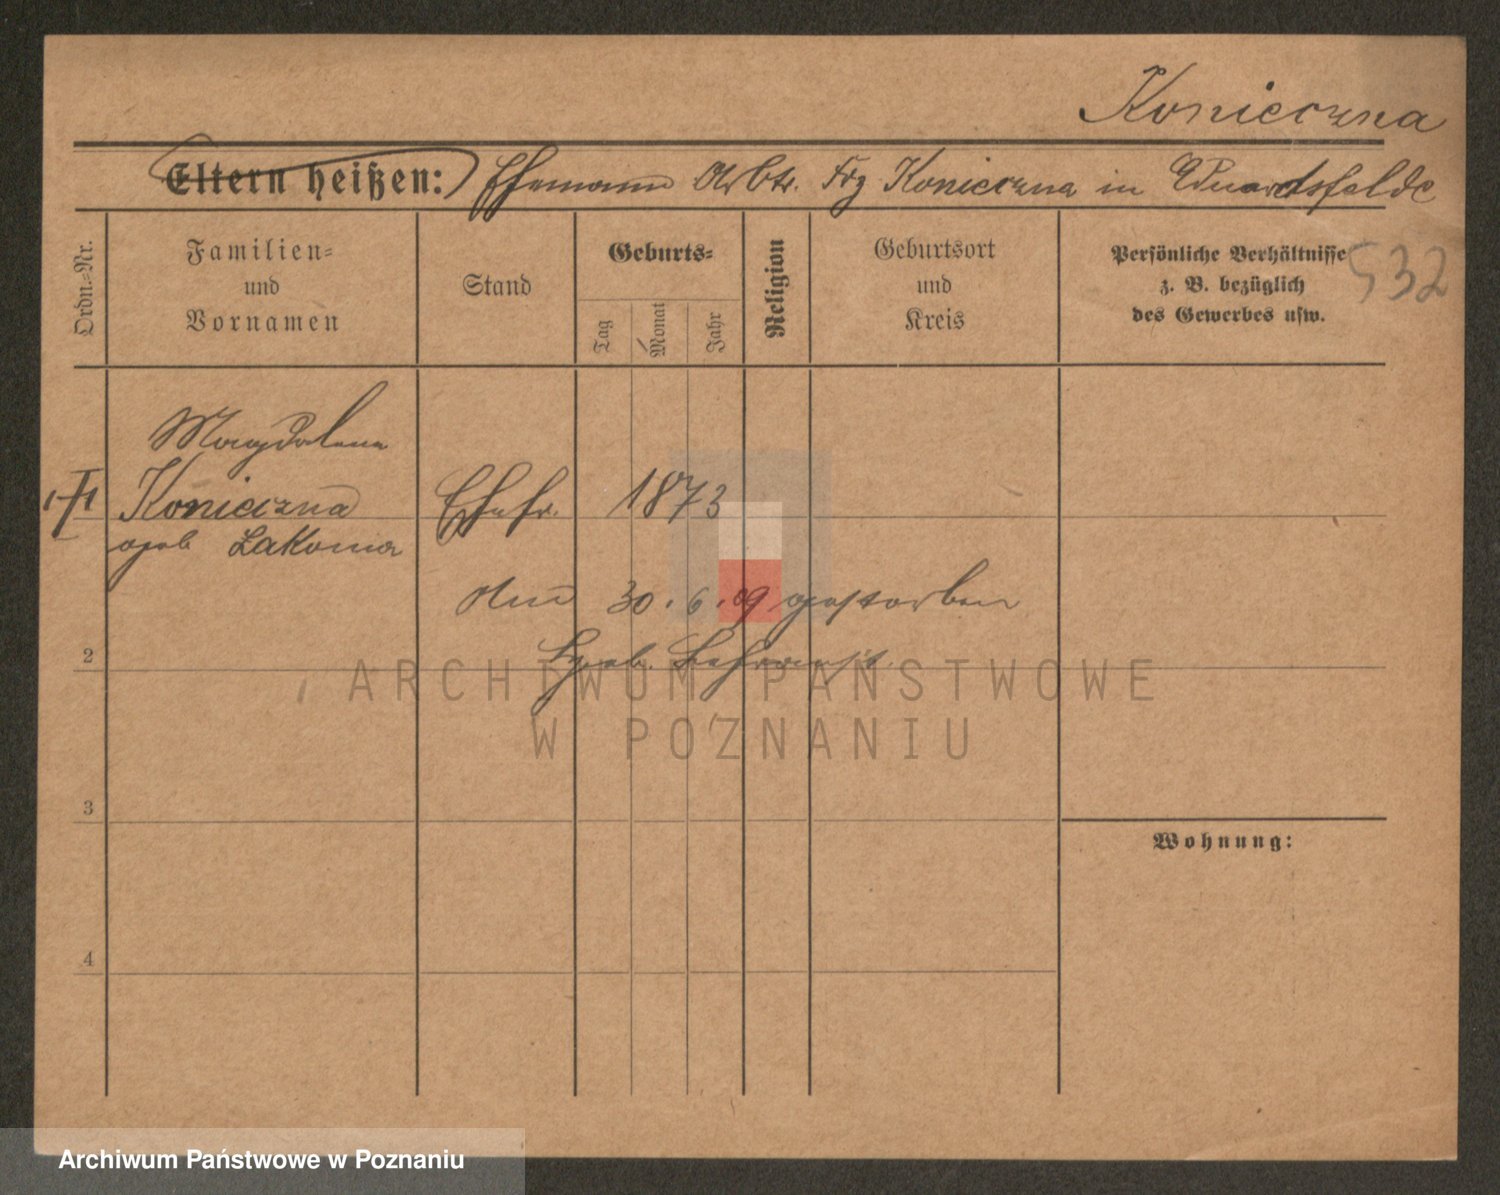 Konieczna
Eltern heißen: Ehemann Arbtr. Frz Konieczna in Eduardsfelde
Ordn.=Nr.
Familien=
und
Vornamen
Stand
Geburts=
Tag
Monat
Jahr
Religion
Geburtsort
und
Kreis
Persönliche Verhältnisse
z. B. bezüglich
des Gewerbes usw.
532
Magdalena
Konieczna Ehefr. 1873
geb Lakoma
Am 30.6.09 gestorben
2
3
4
Wohnung:
ARCHIWUM PAŃSTWOWE
W POZNANIU
Archiwum Państwowe w Poznaniu